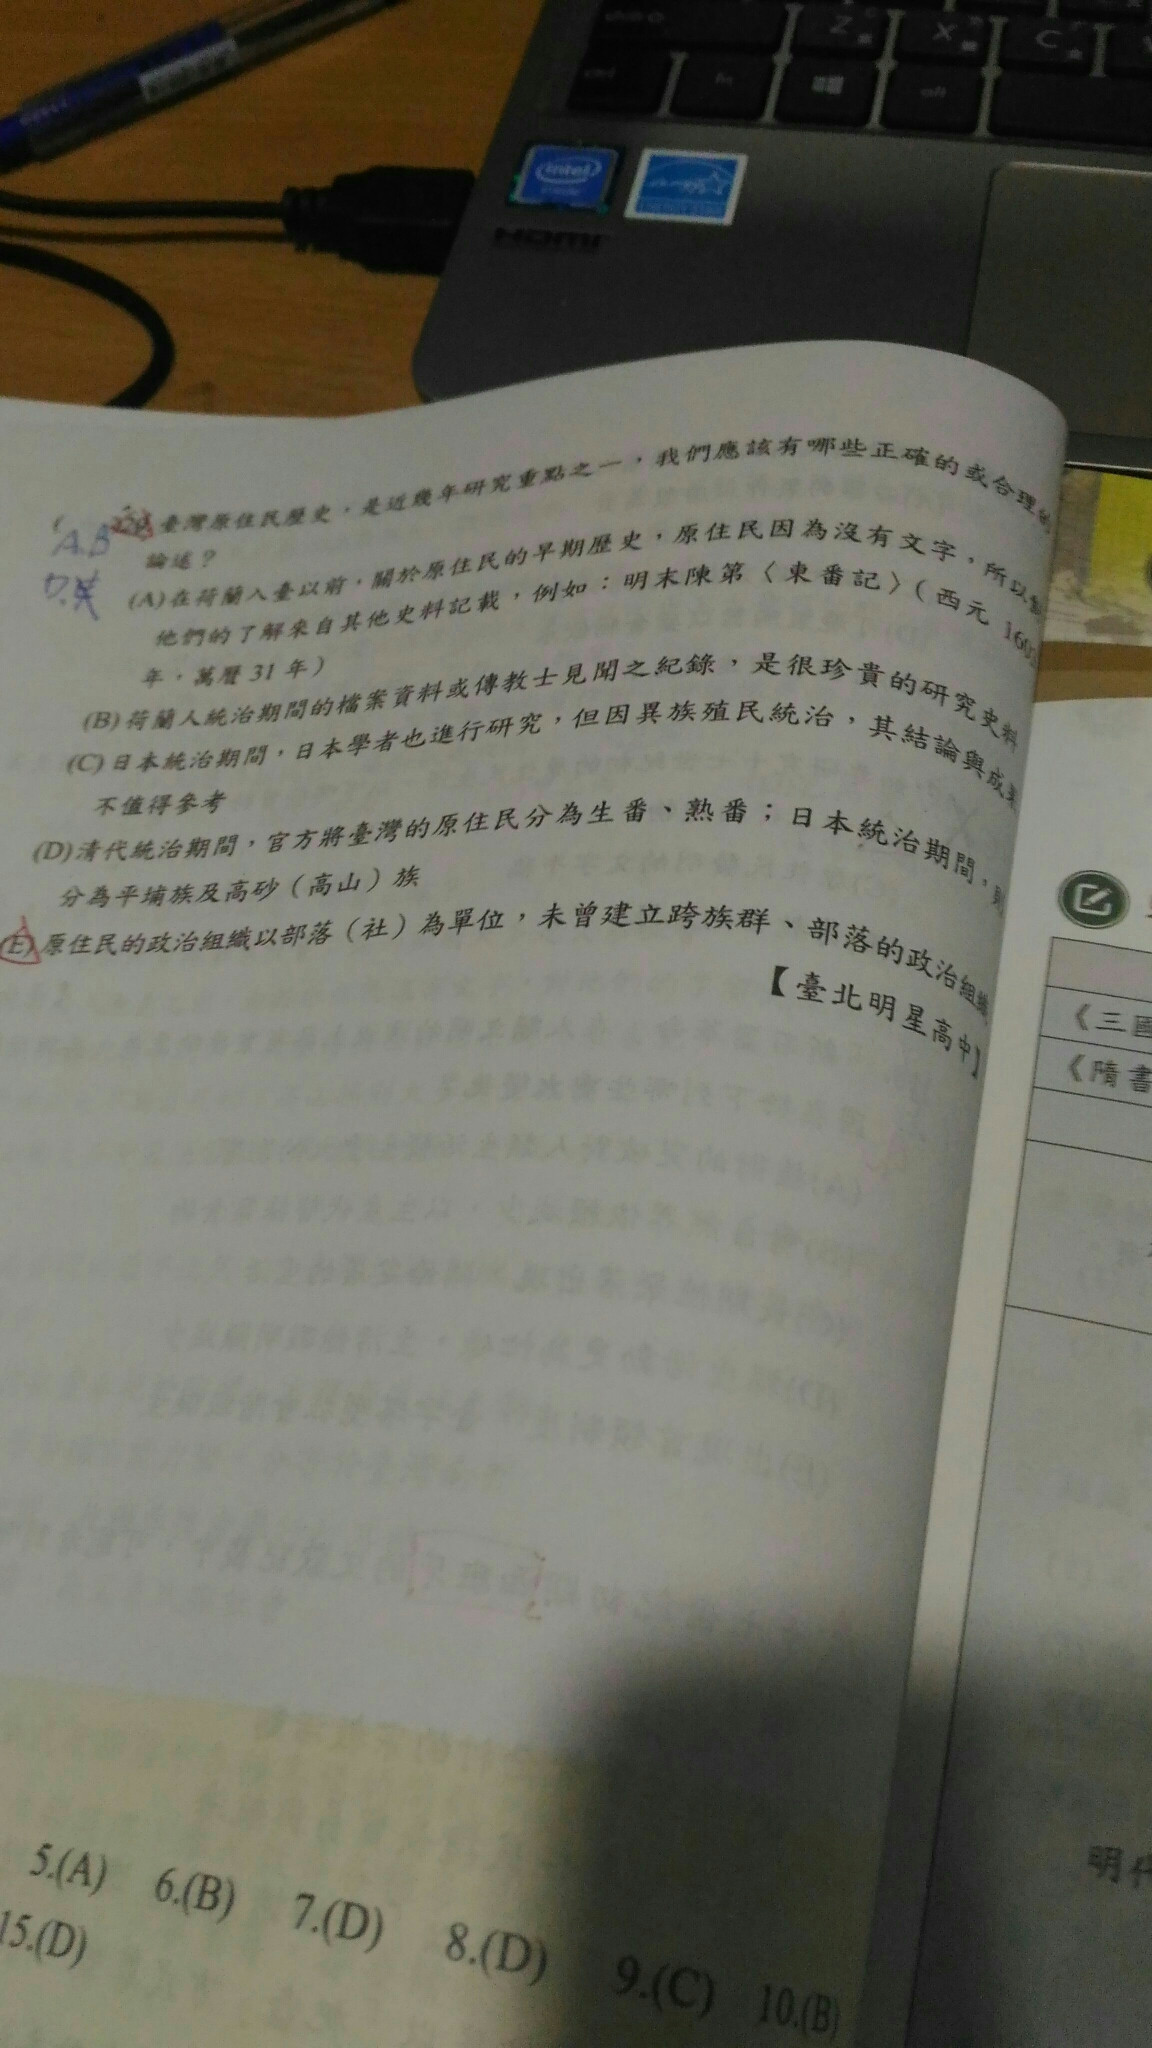 Z
X
C
ctrl
fn
alt
intel
HDMI
臺灣原住民歷史,是近幾年研究重點之一,我們應該有哪些正確的或合理的
A.B
論述?
D.
(A)在荷蘭人臺以前,關於原住民的早期歷史,原住民因為沒有文字,所以
他們的了解來自其他史料記載,例如:明末陳第〈東番記〉(西元
年,萬曆 31 年)
(B)荷蘭人統治期間的檔案資料或傳教士見聞之紀錄,是很珍貴的研究史料
(C)日本統治期間,日本學者也進行研究,但因異族殖民統治,其結論與成果
不值得參考
(D)清代統治期間,官方將臺灣的原住民分為生番、熟番;日本統治期間,則
分為平埔族及高砂(高山)族
(E)原住民的政治組織以部落(社)為單位,未曾建立跨族群、部落的政治組織
【臺北明星高中】
《三國
《隋書
明代
5.(A) 6.(B) 7.(D) 8.(D) 9.(C) 10.(B)
15.(D)